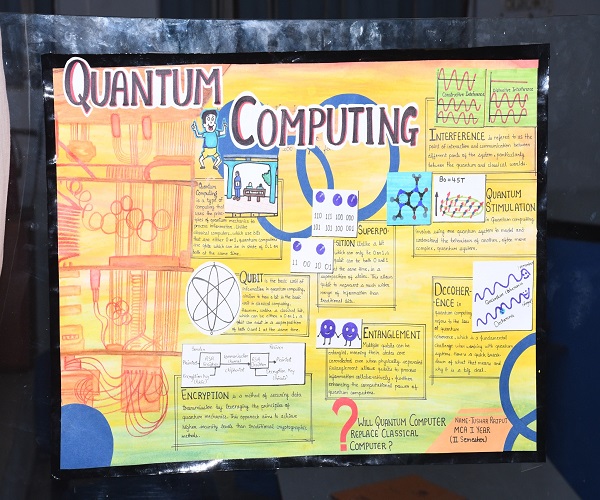 QUANTUM
COMPUTING
Constructive Interference
Destructive Interference
INTERFERENCE is referred to as the
point of interaction and communication between
different parts of the system, particularly
between the quantum and classical worlds.
Quantum
Computing
is a type of
computing that
uses the princi-
ples of quantum mechanics to
process information. Unlike
classical computers, which use bits
that are either 0 or 1, quantum computers
use qubits which can be in state of 0, 1 or
both at the same time.
110 101 100 000
101 011 001 111
11 00 10 01
SUPERPO-
SITION Unlike a bit
which can only be 0 or 1, a
qubit can be both 0 and 1
at the same time, in a
superposition of states. This allows
qubit to represent a much wider
range of information than
traditional data.
B0 = 4.5 T
QUANTUM
STIMULATION
in Quantum computing
involves using one quantum system to model and
understand the behaviour of another, often more
complex, quantum system.
QUBIT is the basic unit of
information in quantum computing,
similar to how a bit is the basic
unit in classical computing.
However, unlike a classical bit,
which can be either 0 or 1, a
qubit can exist in a superposition
of both 0 and 1 at the same time.
DECOHER-
ENCE in
Quantum computing
refers to the loss
of quantum
coherence, which is a fundamental
challenge when working with quantum
systems. Here's a quick break-
down of what that means and
why it is a big deal.
ENTANGLEMENT
Multiple qubits can be
entangled, meaning their states are
correlated even when physically separated.
Entanglement allows qubits to process
information collaboratively, further
enhancing the computational power of
quantum computers.
ENCRYPTION is a method of securing data
transmission by leveraging the principles of
quantum mechanics. This approach aims to achieve
higher security levels than traditional cryptographic
methods.
? WILL QUANTUM COMPUTER
REPLACE CLASSICAL
COMPUTER?
NAME-TUSHAR RAJPUT
MCA I YEAR
(II Semester)